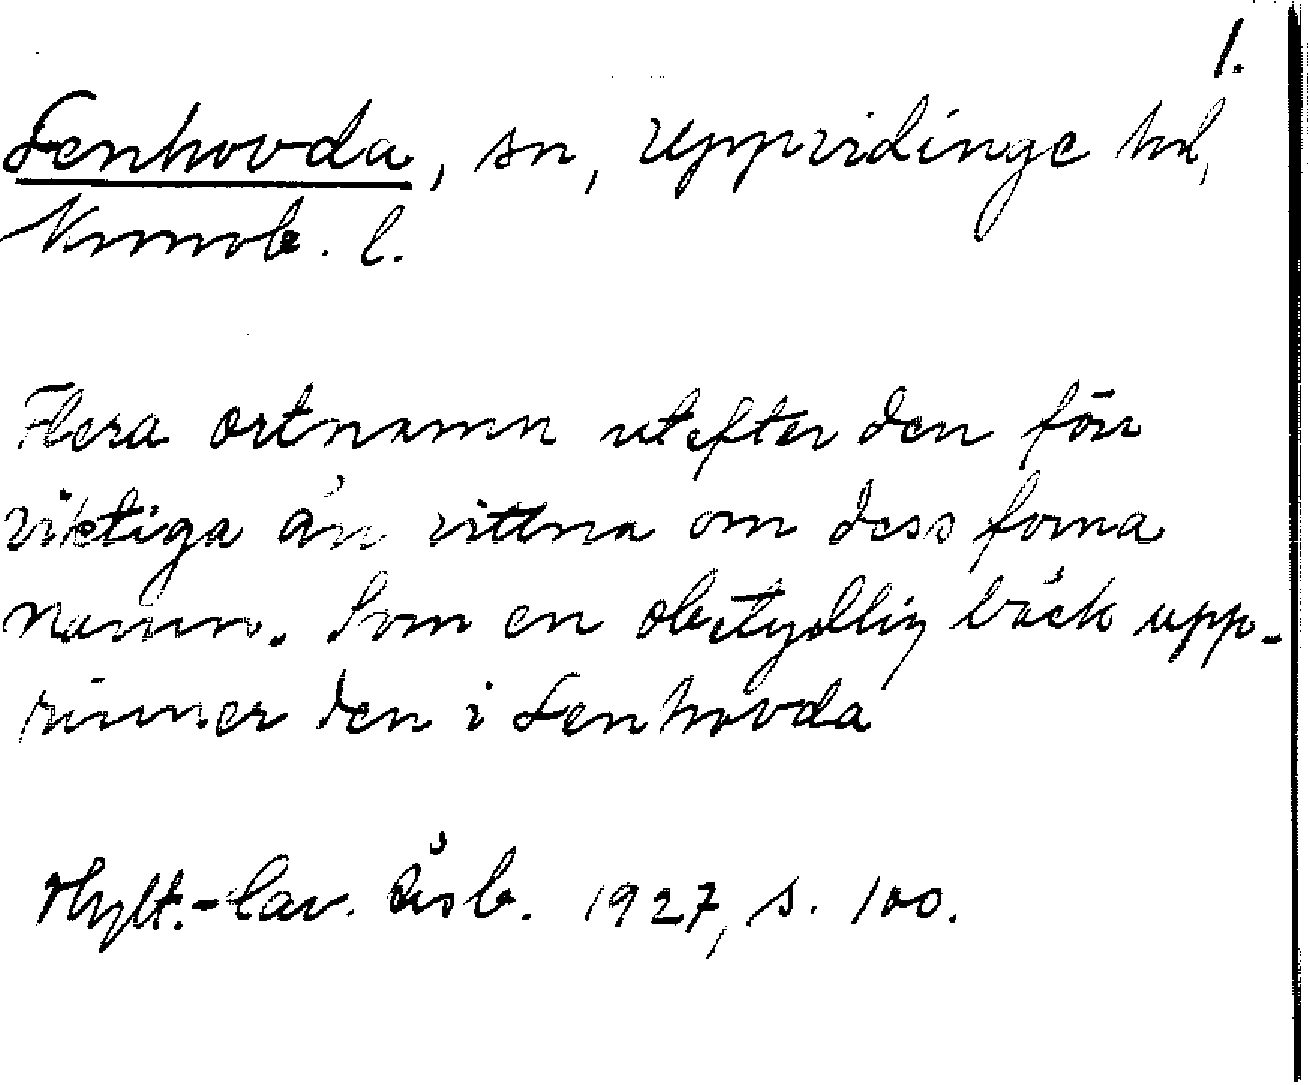 1.
Lenhovda, sn, Uppvidinge hd,
Kronob. l.
Flera ortnamn utefter den förr
viktiga ån vittna om dess forna
namn. Som en obetydlig bäck upp-
rinner den i Lenhovda
Hylt.-Cav. årsb. 1927, s. 100.